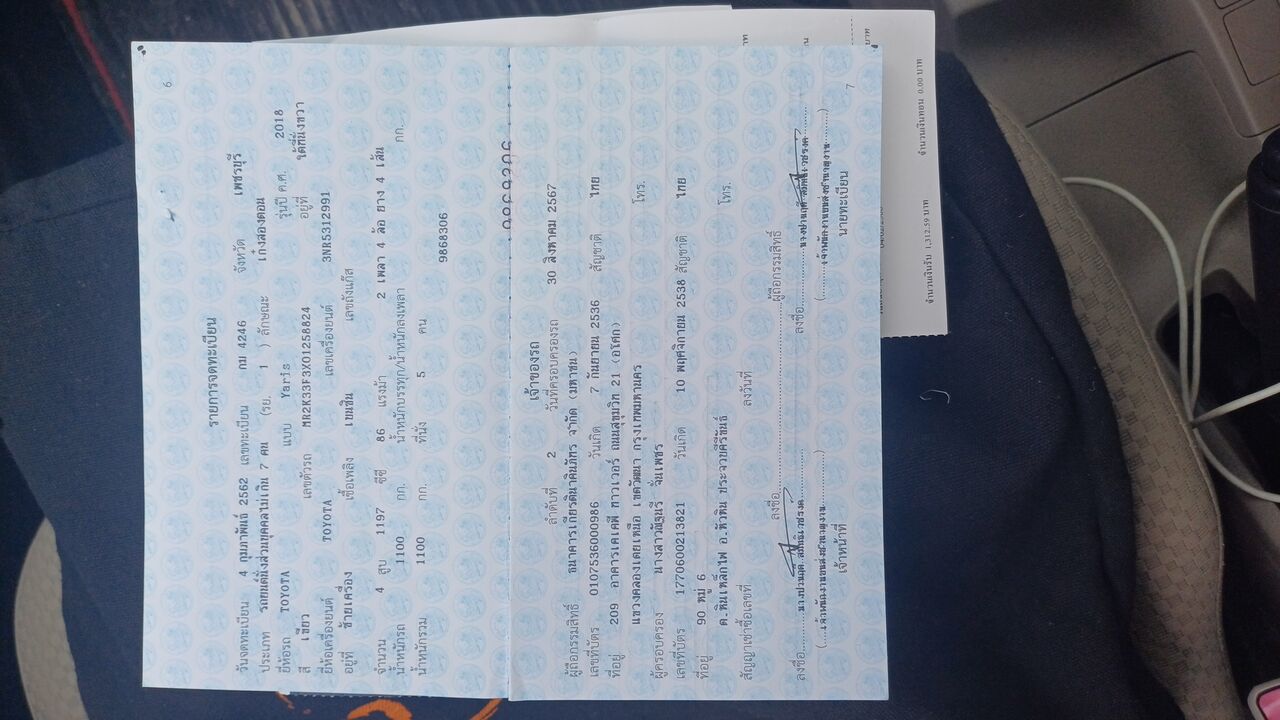 6
รายการจดทะเบียน
วันจดทะเบียน 4 กุมภาพันธ์ 2562 เลขทะเบียน กม 4246 จังหวัด เพชรบุรี
ประเภท รถยนต์นั่งส่วนบุคคลไม่เกิน 7 คน (รย. 1 ) ลักษณะ เก๋งสองตอน
ยี่ห้อรถ TOYOTA แบบ Yaris รุ่นปี ค.ศ. 2018
สี เขียว เลขตัวรถ MR2K33F3X01258824 อยู่ที่ ใต้ที่นั่งขวา
ยี่ห้อเครื่องยนต์ TOYOTA เลขเครื่องยนต์ 3NR5312991
อยู่ที่ ซ้ายเครื่อง เชื้อเพลิง เบนซิน เลขถังแก๊ส
จำนวน 4 สูบ 1197 ซีซี 86 แรงม้า 2 เพลา 4 ล้อ ยาง 4 เส้น
น้ำหนักรถ 1100 กก. น้ำหนักบรรทุก/น้ำหนักลงเพลา กก.
น้ำหนักรวม 1100 กก. ที่นั่ง 5 คน 9868306
เจ้าของรถ
ลำดับที่ 2 วันที่ครอบครองรถ 30 สิงหาคม 2567
ผู้ถือกรรมสิทธิ์ ธนาคารเกียรตินาคินภัทร จำกัด (มหาชน)
เลขที่บัตร 0107536000986 วันเกิด 7 กันยายน 2536 สัญชาติ ไทย
ที่อยู่ 209 อาคารเคเคพี ทาวเวอร์ ถนนสุขุมวิท 21 (อโศก)
แขวงคลองเตยเหนือ เขตวัฒนา กรุงเทพมหานคร โทร.
ผู้ครอบครอง นางสาวณัฐนรี จั่นเพชร
เลขที่บัตร 1770600213821 วันเกิด 10 พฤศจิกายน 2538 สัญชาติ ไทย
ที่อยู่ 90 หมู่ 6
ต.หินเหล็กไฟ อ.หัวหิน ประจวบคีรีขันธ์ โทร.
สัญญาเช่าซื้อเลขที่ ลงวันที่
ลงชื่อ ผู้ถือกรรมสิทธิ์
ลงชื่อ ลงชื่อ
(เจ้าพนักงานขนส่งชำนาญงาน) (เจ้าพนักงานขนส่งชำนาญงาน)
เจ้าหน้าที่ นายทะเบียน
7
จำนวนเงินรับ 1,312.59 บาท จำนวนเงินทอน 0.00 บาท